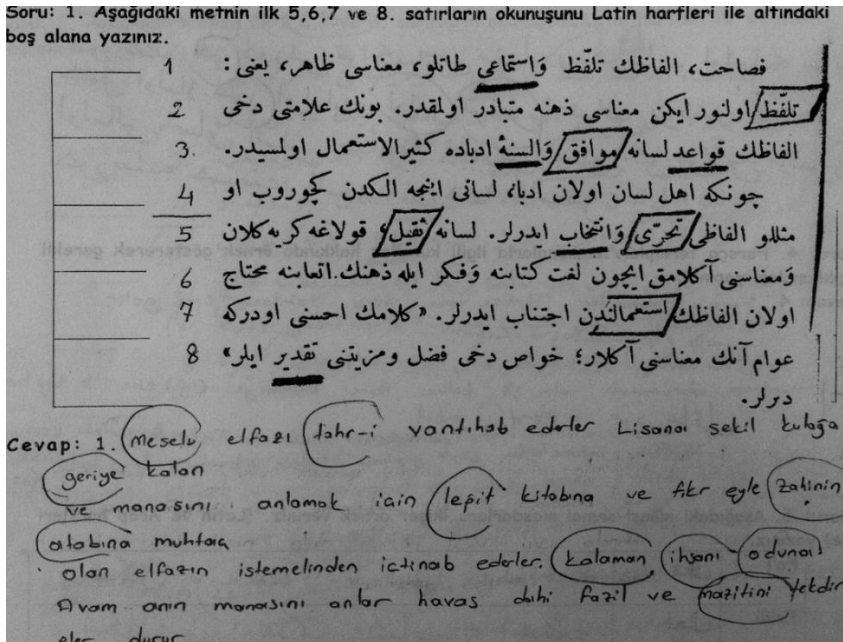 Soru: 1. Aşağıdaki metnin ilk 5,6,7 ve 8. satırların okunuşunu Latin harfleri ile altındaki
boş alana yazınız.
1 فصاحت، الفاظك تلفّظ وَاستماعى طاتلو، معناسى ظاهر، يعنى:
2 تلفّظ اولنور ايكن معناسى ذهنه متبادر اولمقدر. بونك علامتى دخى
3. الفاظك قواعد لسانه موافق وَالسنۀ ادباده كثيرالاستعمال اولمسيدر.
4 چونكه اهل لسان اولان ادبا، لسانى اينجه الكدن كچوروب او
5 مثللو الفاظى تحرّى وَانتخاب ايدرلر. لسانه ثقيل، قولاغه كريه كلان
6 وَمعناسنى آكلامق ايچون لغت كتابنه وَفكر ايله ذهنك اتعابنه محتاج
7 اولان الفاظك استعمالندن اجتناب ايدرلر. «كلامك احسنى اودركه
8 عوام آنك معناسنى آكلار؛ خواص دخى فضل ومزيتنى تقدير ايلر»
ديرلر.
Cevap: 1. meselu elfazı tahr-i vantihab ederler Lisanaı sekil kulağa
geriye kalan
ve manasını anlamak için lepit kitabına ve fikr eyle zahinin
atabına muhtaç
olan elfazın istemelinden ictinab ederler. kalaman ihsanı odunaı
Avam anın manasını anlar havas dihi fazıl ve mazitini tekdir
eler durur